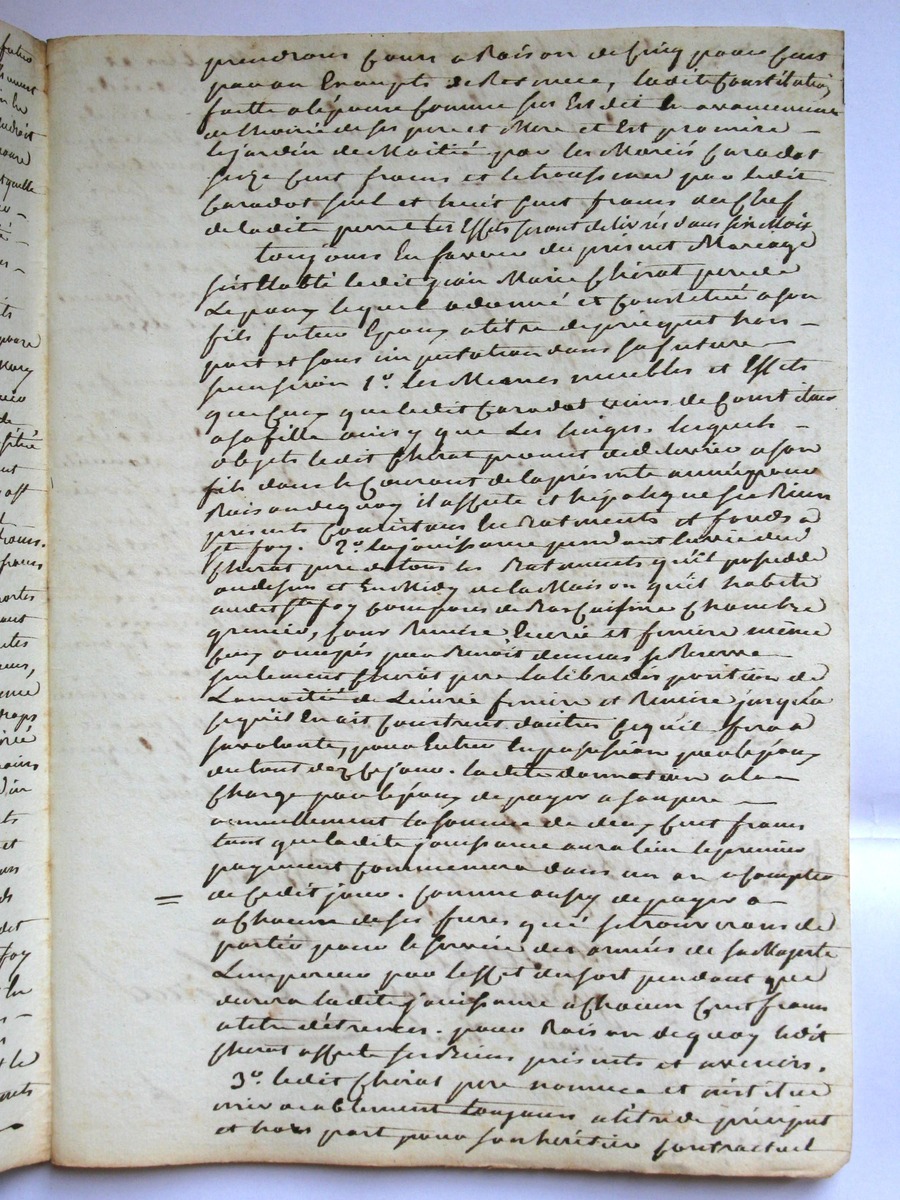 prendront cours a Raison de Cinq pour Cent
par an Exempts de Retenue, ladite Constitution
faitte a lépouse Comme sus Est dit En avancement
de L'hoirie de ses pere et Mere et Est promise
le jardin de Moitié par les Mariés Caradot
seize Cent francs et le trousseau par ledit
Caradot seul et huit Cent francs du Chef
de ladite perret les Effets seront delivrés dans six Mois
toujours En faveur du présent Mariage
s'est Etabli ledit jean Marie Chirat pere de
L'epoux lequel a donné et Constitué a son
fils futur Epoux a titre de preciput hors
part et sans imputation dans sa future
succession 1º. Les Mêmes meubles et Effets
que Ceux que ledit Caradot vient de Constituer
a sa fille ainsy que Les linges. lesquels
objets ledit Chirat promet de delivrer a son
fils dans le Courant de la présente année pour
Raison de quoy il affecte et hypotéque ses Biens
présents Consistans En Batiments et fonds a
Ste foy. 2º. la jouissance pendant la vie dud
Chirat pere de tous les Batiments qu'il possedde
au dessus et En Midy de la Maison qu'il habite
audit Ste foy Composés de Bas Cuisine Chambre
grenier, Cour Remise, Ecurie et feniere même
Ceux occupés par Benoit dumas se Reserve
seulement Chirat pere la libre disposition de
La moitié de L'écurie feniere et Remise jusqu'a
ce qu'il En ait Construit d'autres Ce qu'il fera a
sa volonté, pour Entrer En possession par l'epoux
du tout dez Ce jour. ladite donnation a la
Charge par l'epoux de payer a son pere
annuellement la somme de deux Cent francs
tant que ladite jouissance aura lieu le premier
payement Commencera dans un an a Compter
de Cedit jour. Comme aussy de payer a
a Chacun de ses freres qui se trouveront de
partir pour le service des armées de sa Majesté
L'empereur par l'effet du sort pendant que
durera ladite jouissance a Chacun Cent francs
a titre d'étrennes. pour Raison de quoy ledit
Chirat affecte ses Biens présents et avenirs.
3º. ledit Chirat pere nomme et institue
irrevocablement toujours a titre de préciput
et hors part pour son héritier Contractuel